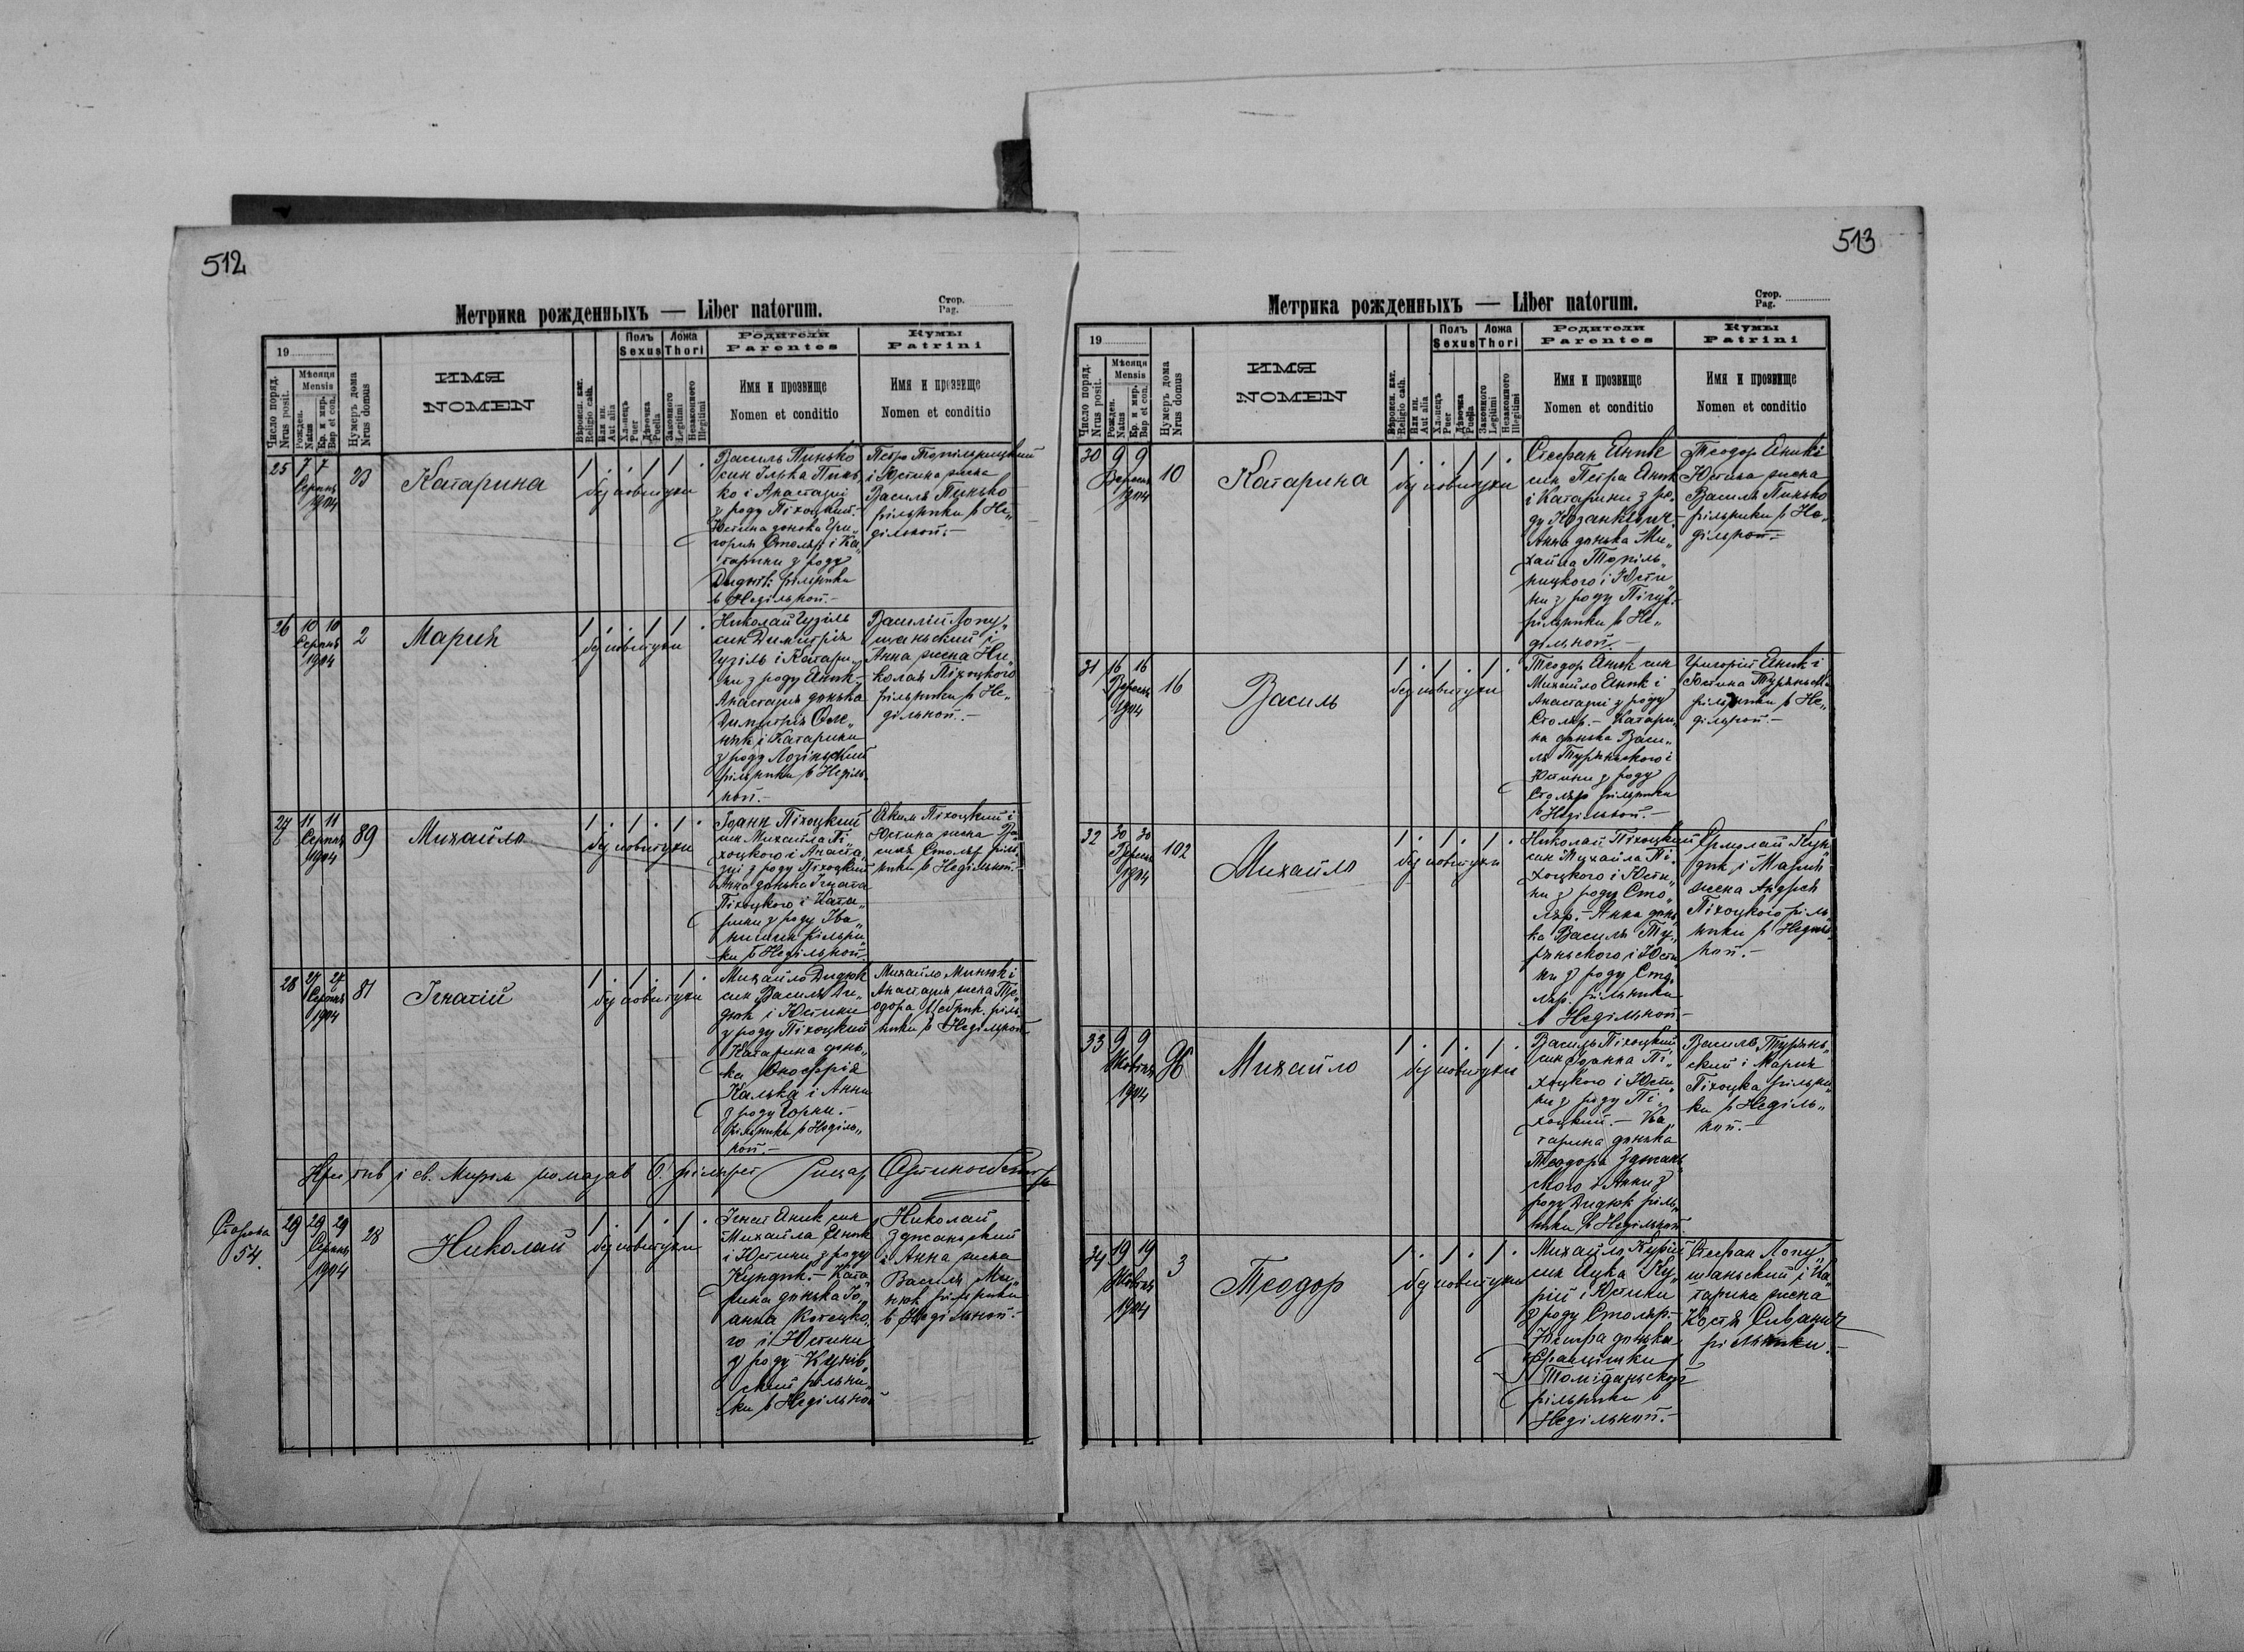 512
Метрика рожденныхъ — Liber natorum.
Стор.
Pag.
19
Число поряд.
Nrus posit.
Мѣсяця
Mensis
Рожден.
Natus
Кр. и мир.
Bap et con.
Нумеръ дома
Nrus domus
ИМЯ
NOMEN
Вѣроисп. кат.
Religio cath.
Или ин.
Aut alia
Полъ
Sexus
Хлопецъ
Puer
Дѣвочка
Puella
Ложа
Thori
Законного
Legitimi
Незаконного
Illegitimi
Родители
Parentes
Имя и прозвище
Nomen et conditio
Кумы
Patrini
Имя и прозвище
Nomen et conditio
25 7 7
Серпень
1904
Катарина
1 . . 1 1 .
без повитухи
Василь Пинько
син Ілька Пинь
ко і Анастазиї
з роду Піхоцкий.-
Юстина донька Гри„
гория Столяр і Ка„
тарини з роду
рільники
в Недільной.-
Петро Топільницкий
і Юстина жена
Василя Пинько
рільники в Не„
дільной.-
26 10 10
Серпень
1904
2
Мария
1 . . 1 1 .
без повитухи
Николай Гузіль
син Димитрія
Гузіль і Катари„
ни з роду Яник.-
Анастазия донька
Димитрія
і Катарини
з роду Лозіньский
рільники в Неділь„
ной.-
Василій Лопу„
шаньский і
Анна жена Ни„
колая Піхоцкого
рільники в Не„
дільной.-
27 11 11
Серпень
1904
89
Михайло
1 . 1 . 1 .
без повитухи
Іоанн Піхоцкий
син Михаила Пі„
хоцкого і Анаста„
зиї з роду Піхоцкий
Анна донька Ігната
Піхоцкого і Ката„
рини з роду Іва„
нишин рільни„
ки в Недільной.
Яким Піхоцкий і
Юстина жена Ва„
силя Столярріль„
ники в Недільной.-
28 27 27
Серпень
1904
81
Ігнатій
1 . 1 . 1 .
без повитухи
Михайло Дидюк
син Василя Ди„
дюк і Юстини
з роду Піхоцкий
Катарина донь„
ка Онофрія
Калька і Анни
з роду Горни.-
рільники в Неділь„
ной.-
Михайло Минюк і
Анастазия жена Те„
одора Цебрик. ріль„
ники в Недільной
і св. Миром помазав О.
Сторона
54.
29 29 29
Серпень
1904
28
Николай
1 . 1 . 1 .
без повитухи
Ігнат Яник син
Михайла Яник
і Юстини з роду
Кундик.- Ката„
рина донька Іо„
анна Котецко„
го і Юстини
з роду Кунів„
ский рільни„
ки в Недільной
Николай
Зджаньский
і Анна жена
Василя Ми„
нюк рільники
в Недільной.-
513
Метрика рожденныхъ — Liber natorum.
Стор.
Pag.
19
Число поряд.
Nrus posit.
Мѣсяця
Mensis
Рожден.
Natus
Кр. и мир.
Bap et con.
Нумеръ дома
Nrus domus
ИМЯ
NOMEN
Вѣроисп. кат.
Religio cath.
Или ин.
Aut alia
Полъ
Sexus
Хлопецъ
Puer
Дѣвочка
Puella
Ложа
Thori
Законного
Legitimi
Незаконного
Illegitimi
Родители
Parentes
Имя и прозвище
Nomen et conditio
Кумы
Patrini
Имя и прозвище
Nomen et conditio
30 9 9
Вересень
1904
10
Катарина
1 . . 1 1 .
без повитухи
Стефан Яник
син Петра Яник
і Катарини з ро„
ду
Анна донька Ми„
хайла Топіль„
ницкого і Юсти„
ни з роду
рільники в Не„
дільной.-
Теодор Яник і
Юстина жена
Василя Пинько
рільники в Не„
дільной.-
31 16 16
Вересень
1904
16
Василь
1 . 1 . 1 .
без повитухи
Теодор Яник син
Михайло Яник і
Анастазиї з роду
Столяр.- Катари„
на донька Васи„
ля Туряньского і
Юстини з роду
Столяр рільники
в Недільной.-
Григорій Яник і
Юстина Туряньска
рільники в Не„
дільной.-
32 30 30
Вересень
1904
102
Михайло
1 . 1 . 1 .
без повитухи
Николай Піхоцкий
син Михайла Пі„
хоцкого і Юсти„
ни з роду Сто„
ляр.- Анна донь„
ка Василя Ту„
ряньского і Юсти„
ни з роду Сто„
ляр. рільники
в Недільной.-
Ермолай Кун„
дик і Мария
жена Андрея
Піхоцкого ріль„
ники в Неділь„
ной.-
33 9 9
Жовтень
1904
96
Михайло
1 . 1 . 1 .
без повитухи
Василь Піхоцкий
син Іоанна Пі„
хоцкого і Юсти„
ни з роду Пі„
хоцкий.- Ка„
тарина донька
Теодора Зджань„
ского і Анни з
роду Дидюк ріль„
ники в Недільной
Василь Турянь„
ский і Мария
Піхоцка рільни„
ки в Неділь„
ной.-
34 19 19
Жовтень
1904
3
Теодор
1 . 1 . 1 .
без повитухи
Михайло Курій
син Яцка Ку„
рій і Юстини
з роду Столяр.-
донька
Францішки
рільники в
Недільной.-
Стефан Лопу„
шаньский і Ка„
тарина жена
Костя Сиванич
рільники.-